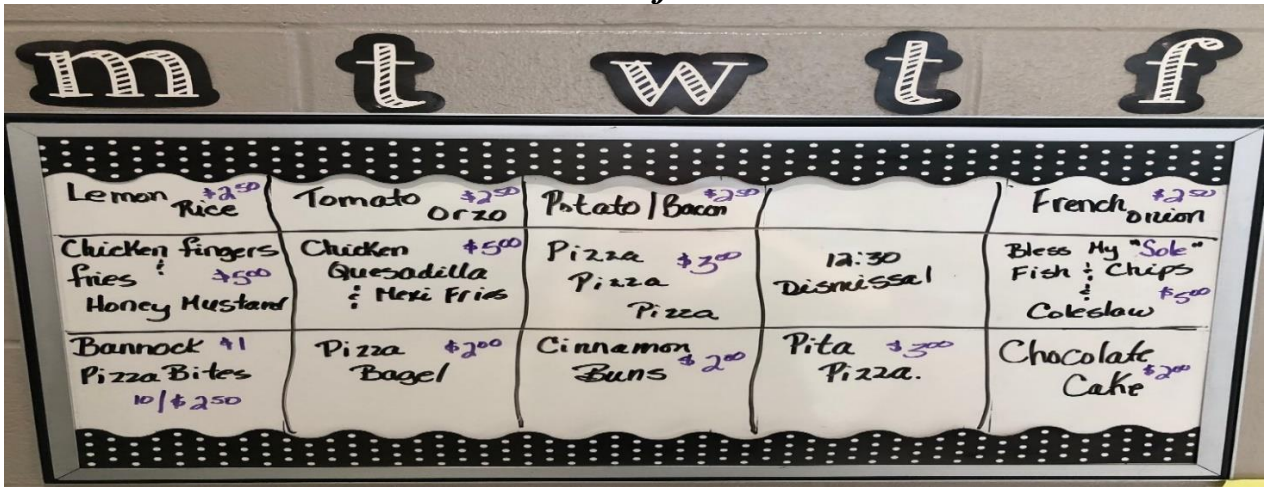 m t w t f
Lemon $2.50
Rice
Tomato $2.50
Orzo
Potato | Bacon $2.50
French $2.50
onion
Chicken fingers
&
fries $5.00
Honey Mustard
Chicken $5.00
Quesadilla
& Mexi Fries
Pizza $3.00
Pizza
Pizza
12:30
Dismissal
Bless My "Sole"
Fish & Chips
& $5.00
Coleslaw
Bannock $1
Pizza Bites
10/$2.50
Pizza $2.00
Bagel
Cinnamon
Buns $2.00
Pita $3.00
Pizza.
Chocolate
Cake $2.00